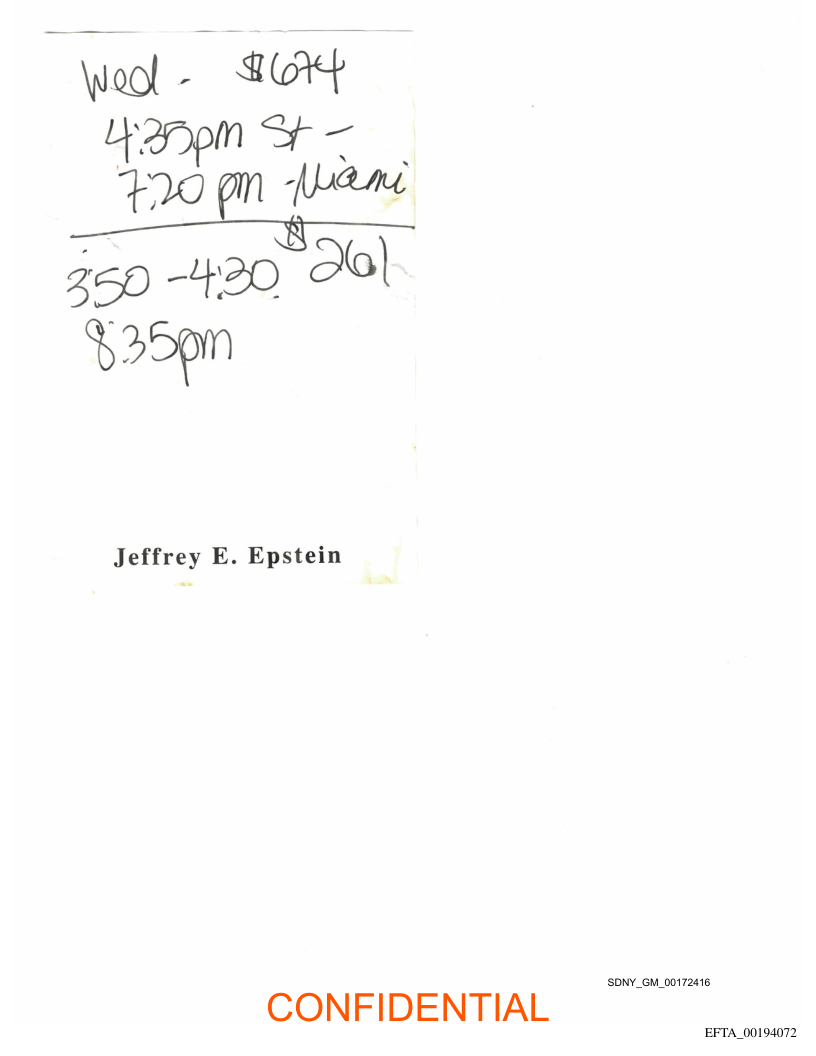 Wed - $674
4:35pm St -
7:20 pm - Miami
3:50 - 4:30 $261
8:35pm
Jeffrey E. Epstein
SDNY_GM_00172416
CONFIDENTIAL
EFTA_00194072